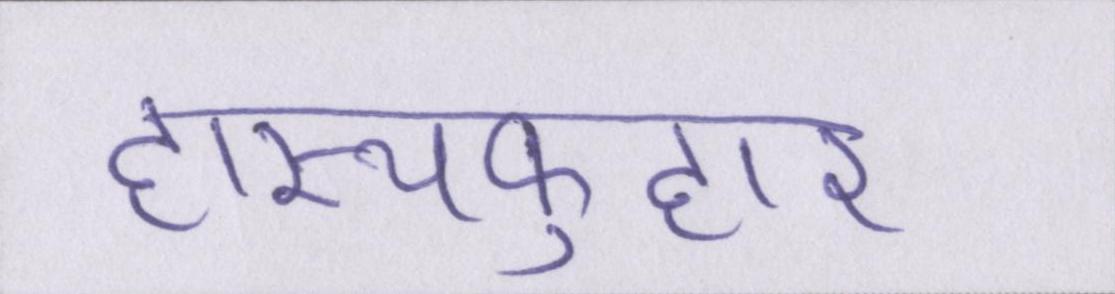 हास्यफुहार